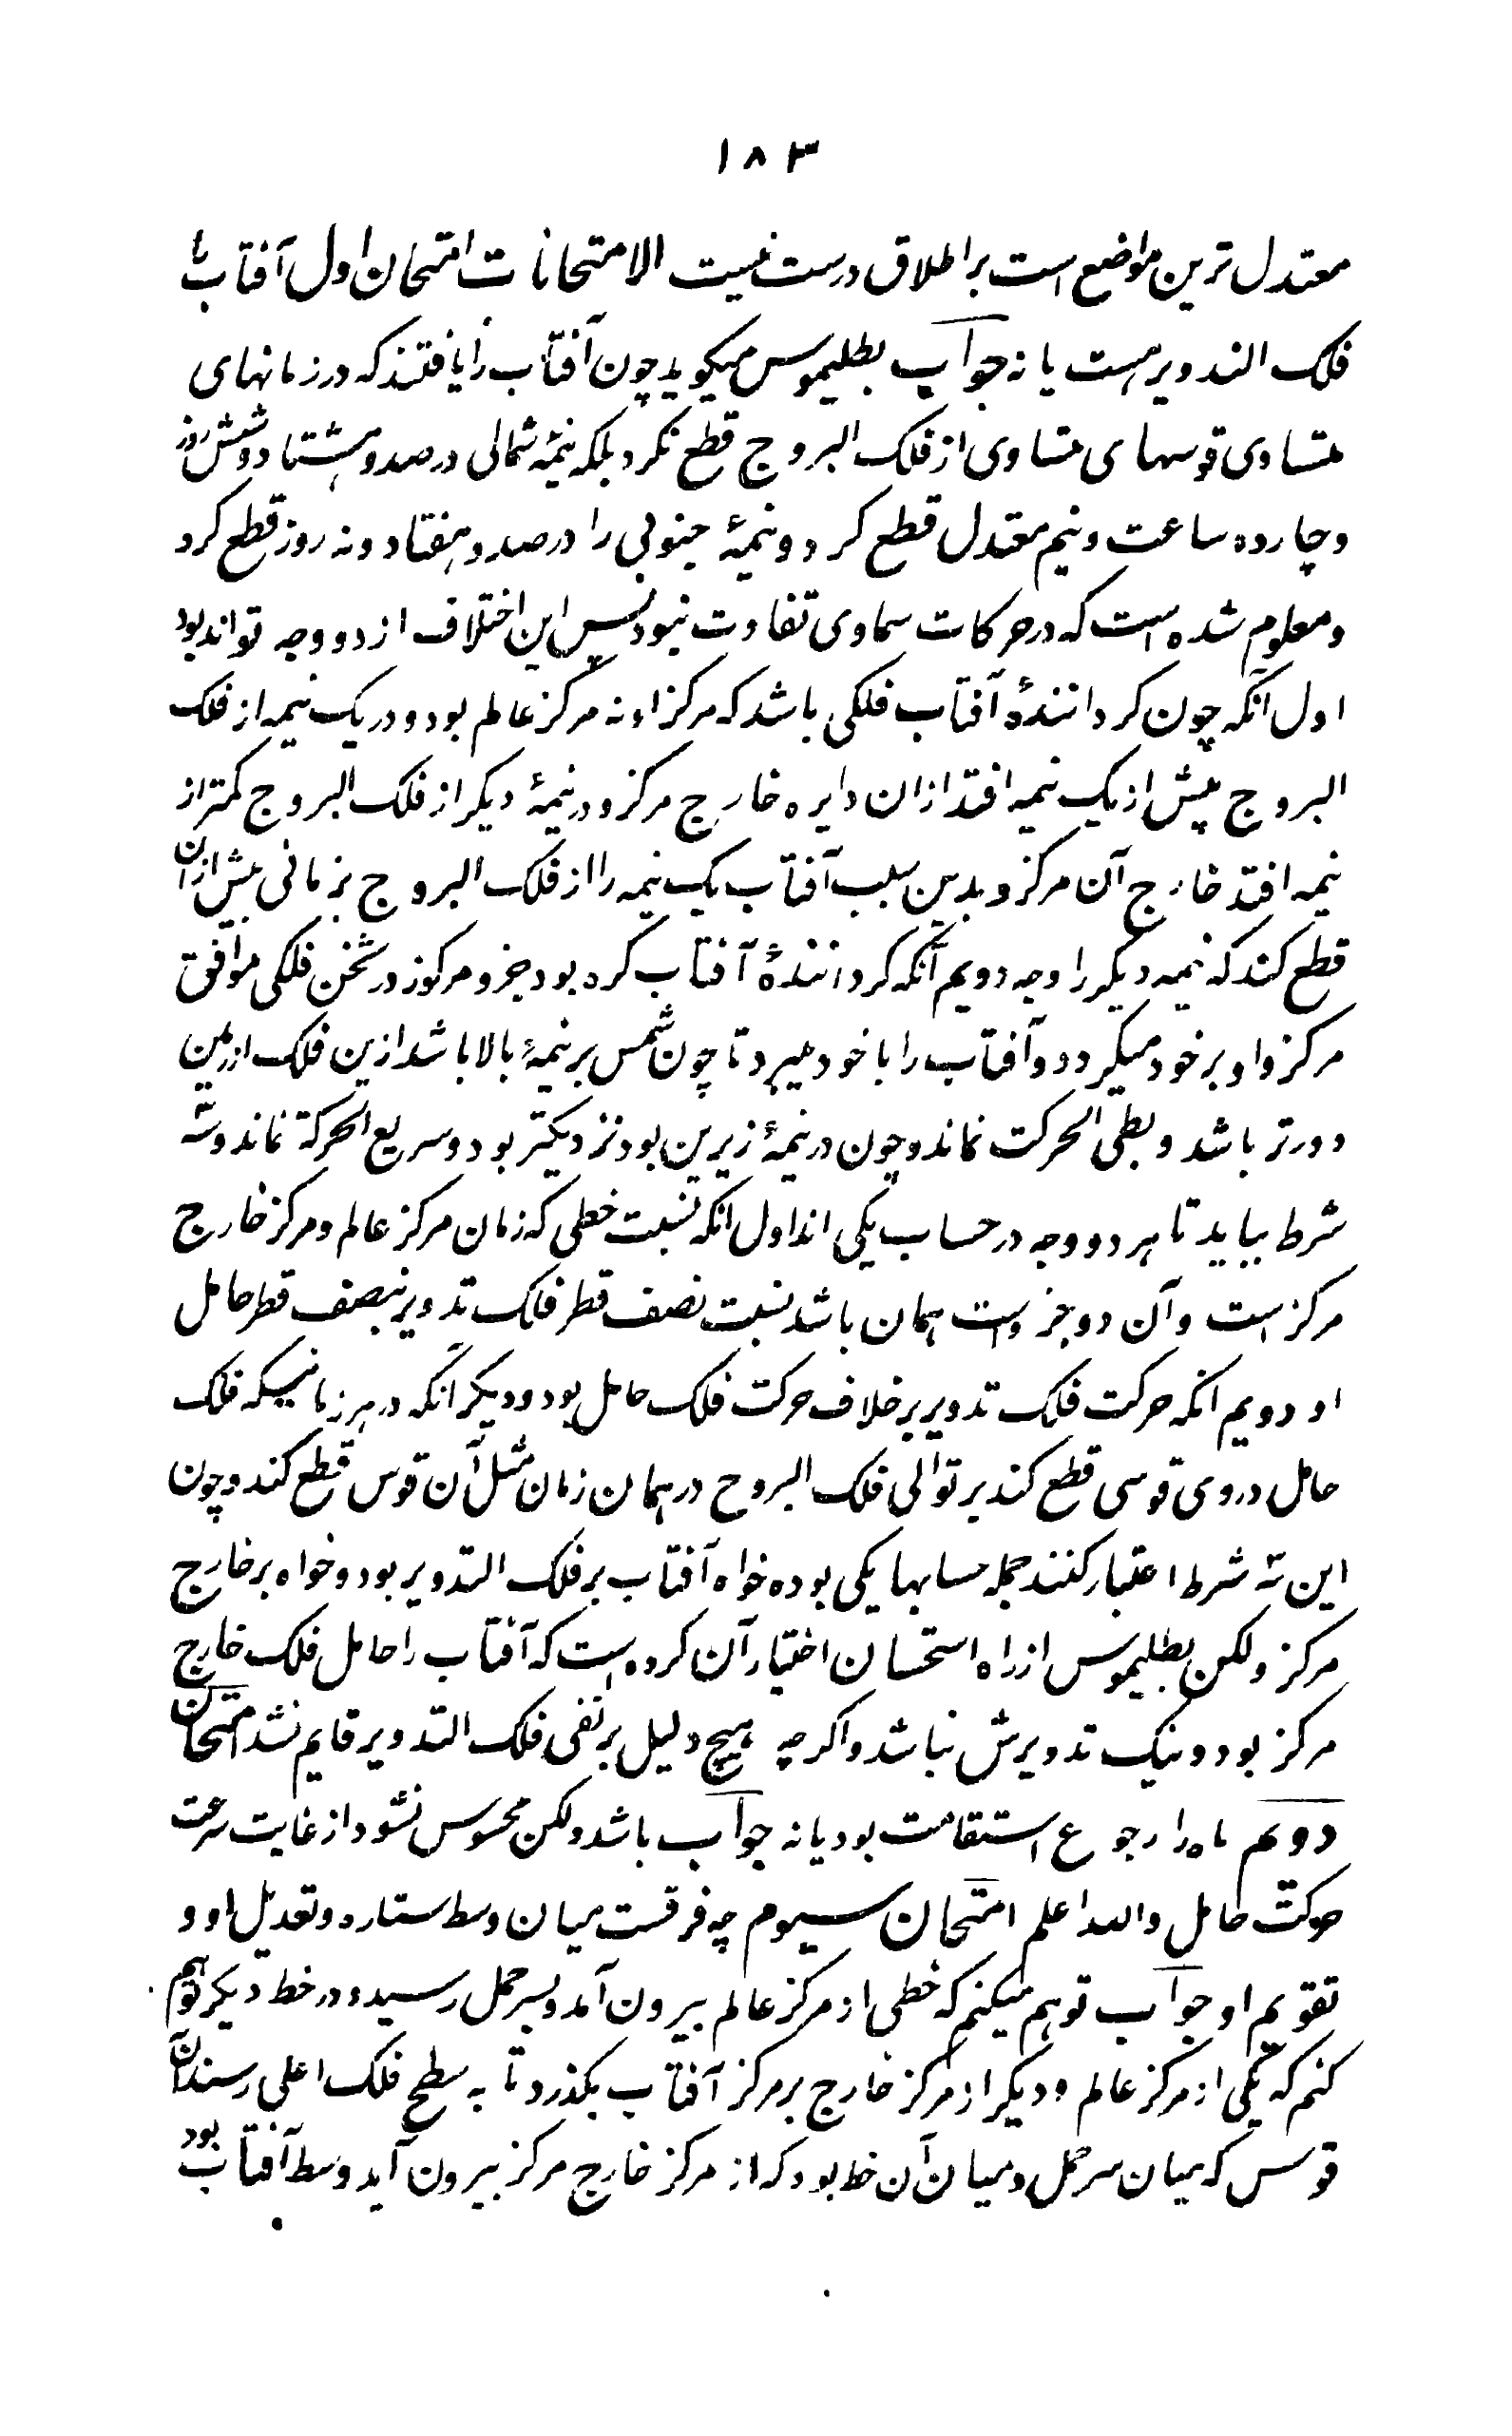 ۱۸۳
معتدل ترین مواضع است بر اطلاق درست نیست الامتحانات امتحان اول آفتاب را
فلک التدویر هست یا نه جواب بطلیموس میگوید چون آفتاب را یافتند که در زمانهای
متساوی قوسهای متساوی از فلک البروج قطع نکرد بلکه نیمهٔ شمالی در صد و هشتاد و شش روز
و چارده ساعت و نیم معتدل قطع کرد و نیمهٔ جنوبی را در صد و هفتاد و نه روز قطع کرد
و معلوم شده است که در حرکات سماوی تفاوت نبود پس این اختلاف از دو وجه تواند بود
اول آنکه چون کردانندهٔ آفتاب فلکی باشد که مرکز او نه مرکز عالم بود و در یک نیمه از فلک
البروج بیش از یک نیمه افتد ازان دایره خارج مرکز و در نیمهٔ دیکر از فلک البروج کمتر از
نیمه افتد خارج آن مرکز و بدین سبب آفتاب یک نیمه را از فلک البروج بزمانی بیش ازان
قطع کند که نیمه دیکر را وجه دویم آنکه کردانندهٔ آفتاب کره بود جزو مرکوز در ثخن فلکی موافق
مرکز و او بر خود میکردد و آفتاب را با خود میبرد تا چون شمس بر نیمهٔ بالا باشد ازین فلک از زمین
دورتر باشد و بطی الحرکت نماند و چون در نیمهٔ زیرین بود نزدیکتر بود و سریع الحرکة نماند و سّه
شرط بباید تا هر دو وجه در حساب یکی اند اول آنکه نسبت خطی که زمان مرکز عالم و مرکز خارج
مرکز است و آن دو جزو است همان باشد نسبت نصف قطر فلک تدویر بنصف قطر حامل
او دویم آنکه حرکت فلک تدویر بر خلاف حرکت فلک حامل بود و دیکر آنکه در هر زمانیکه فلک
حامل در وی قوسی قطع کند بر توالی فلک البروج در همان زمان مثل آن قوس قطع کند و چون
این سّه شرط اعتبار کنند جمله حسابها یکی بوده خواه آفتاب بر فلک التدویر بود و خواه بر خارج
مرکز ولکن بطلیموس از راه استحسان اختیار آن کرده است که آفتاب را حامل فلک خارج
مرکز بود و نیک تدویرش نباشد و اکرچه هیچ دلیل بر نفی فلک التدویر قایم نشد امتحان
دویم ماه را رجوع استقامت بود یا نه جواب باشد ولکن محسوس نشود از غایت سرعت
حرکت حامل والله اعلم امتحان سیوم چه فرقست میان وسط ستاره و تعدیل او و
تقویم او جواب توهم میکنم که خطی از مرکز عالم بیرون آمد و بسر حمل رسیده و در خط دیکر توهم
کنم که یکی از مرکز عالم و دیکر از مرکز خارج بر مرکز آفتاب بکذرد تا به سطح فلک اعلی رسند آن
قوس که میان سر حمل و میان آن خط بود که از مرکز خارج مرکز بیرون آید وسط آفتاب بود